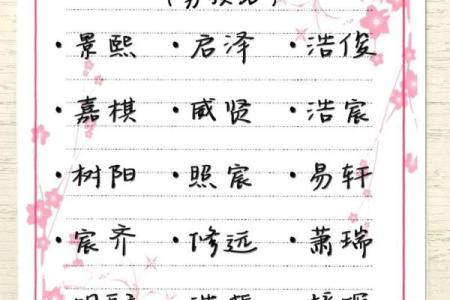 ·景熙 ·启泽 ·浩俊
·嘉棋 ·威贤 ·浩宸
·树阳 ·照宸 ·易轩
·宸齐 ·修远 ·萧瑞